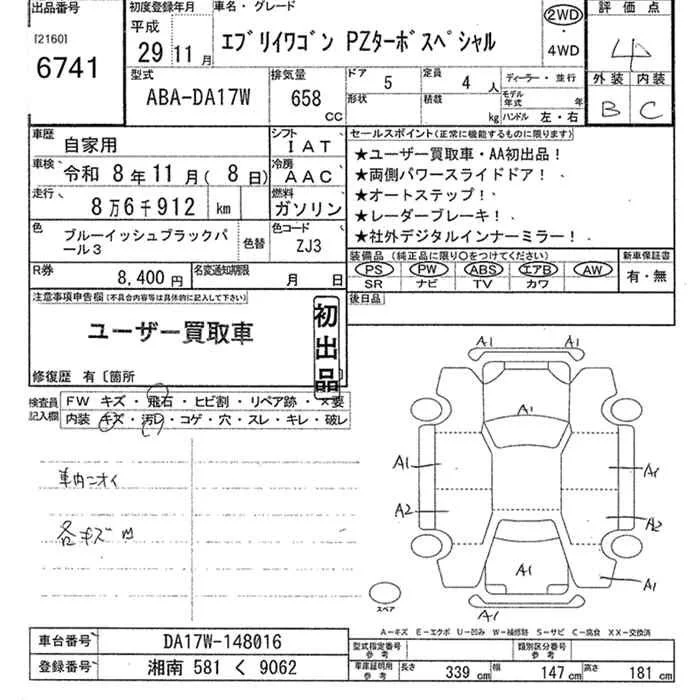 出品番号 初度登録年月 車名・グレード 評価点
[2160] 平成
6741 29年 11月 エブリイワゴン PZターボスペシャル 2WD・4WD 4
型式 排気量 ドア 5 定員 4人 ディーラー・並行 外装 内装
ABA-DA17W 658cc 形状 積載 kg モデル年式 年 B C
ハンドル 左・右
車歴 自家用 シフト IAT セールスポイント(正常に機能するものに限ります)
車検 令和 8年11月(8日) 冷房 AAC ★ユーザー買取車・AA初出品!
★両側パワースライドドア!
走行 8万6千912 km 燃料 ガソリン ★オートステップ!
★レーダーブレーキ!
色 ブルーイッシュブラックパール3 色替 色コード ZJ3 ★社外デジタルインナーミラー!
装備品(純正品に限り○をつけてください) 新車保証書
R券 8,400円 名変通知期限 月 日 PS PW ABS エアB AW 有・無
SR ナビ TV カワ
注意事項申告欄(不具合内容等は具体的に記入して下さい) 後日品
ユーザー買取車 初出品
修復歴 有〔箇所
検査員記入欄 FW キズ・飛石・ヒビ割・リペア跡・×要
内装 キズ・汚レ・コゲ・穴・スレ・キレ・破レ
車内ニオイ
各キズ凹
A1 A1
A1
A1 A1
A2 A2
A1 A1
A1
スペア
A-キズ E-エクボ U-凹み W-補修跡 S-サビ C-腐食 XX-交換済
車台番号 DA17W-148016 型式指定番号 参考 類別区分番号 参考
登録番号 湘南 581 く 9062 車庫証明用 参考 長さ 339cm 幅 147cm 高さ 181cm